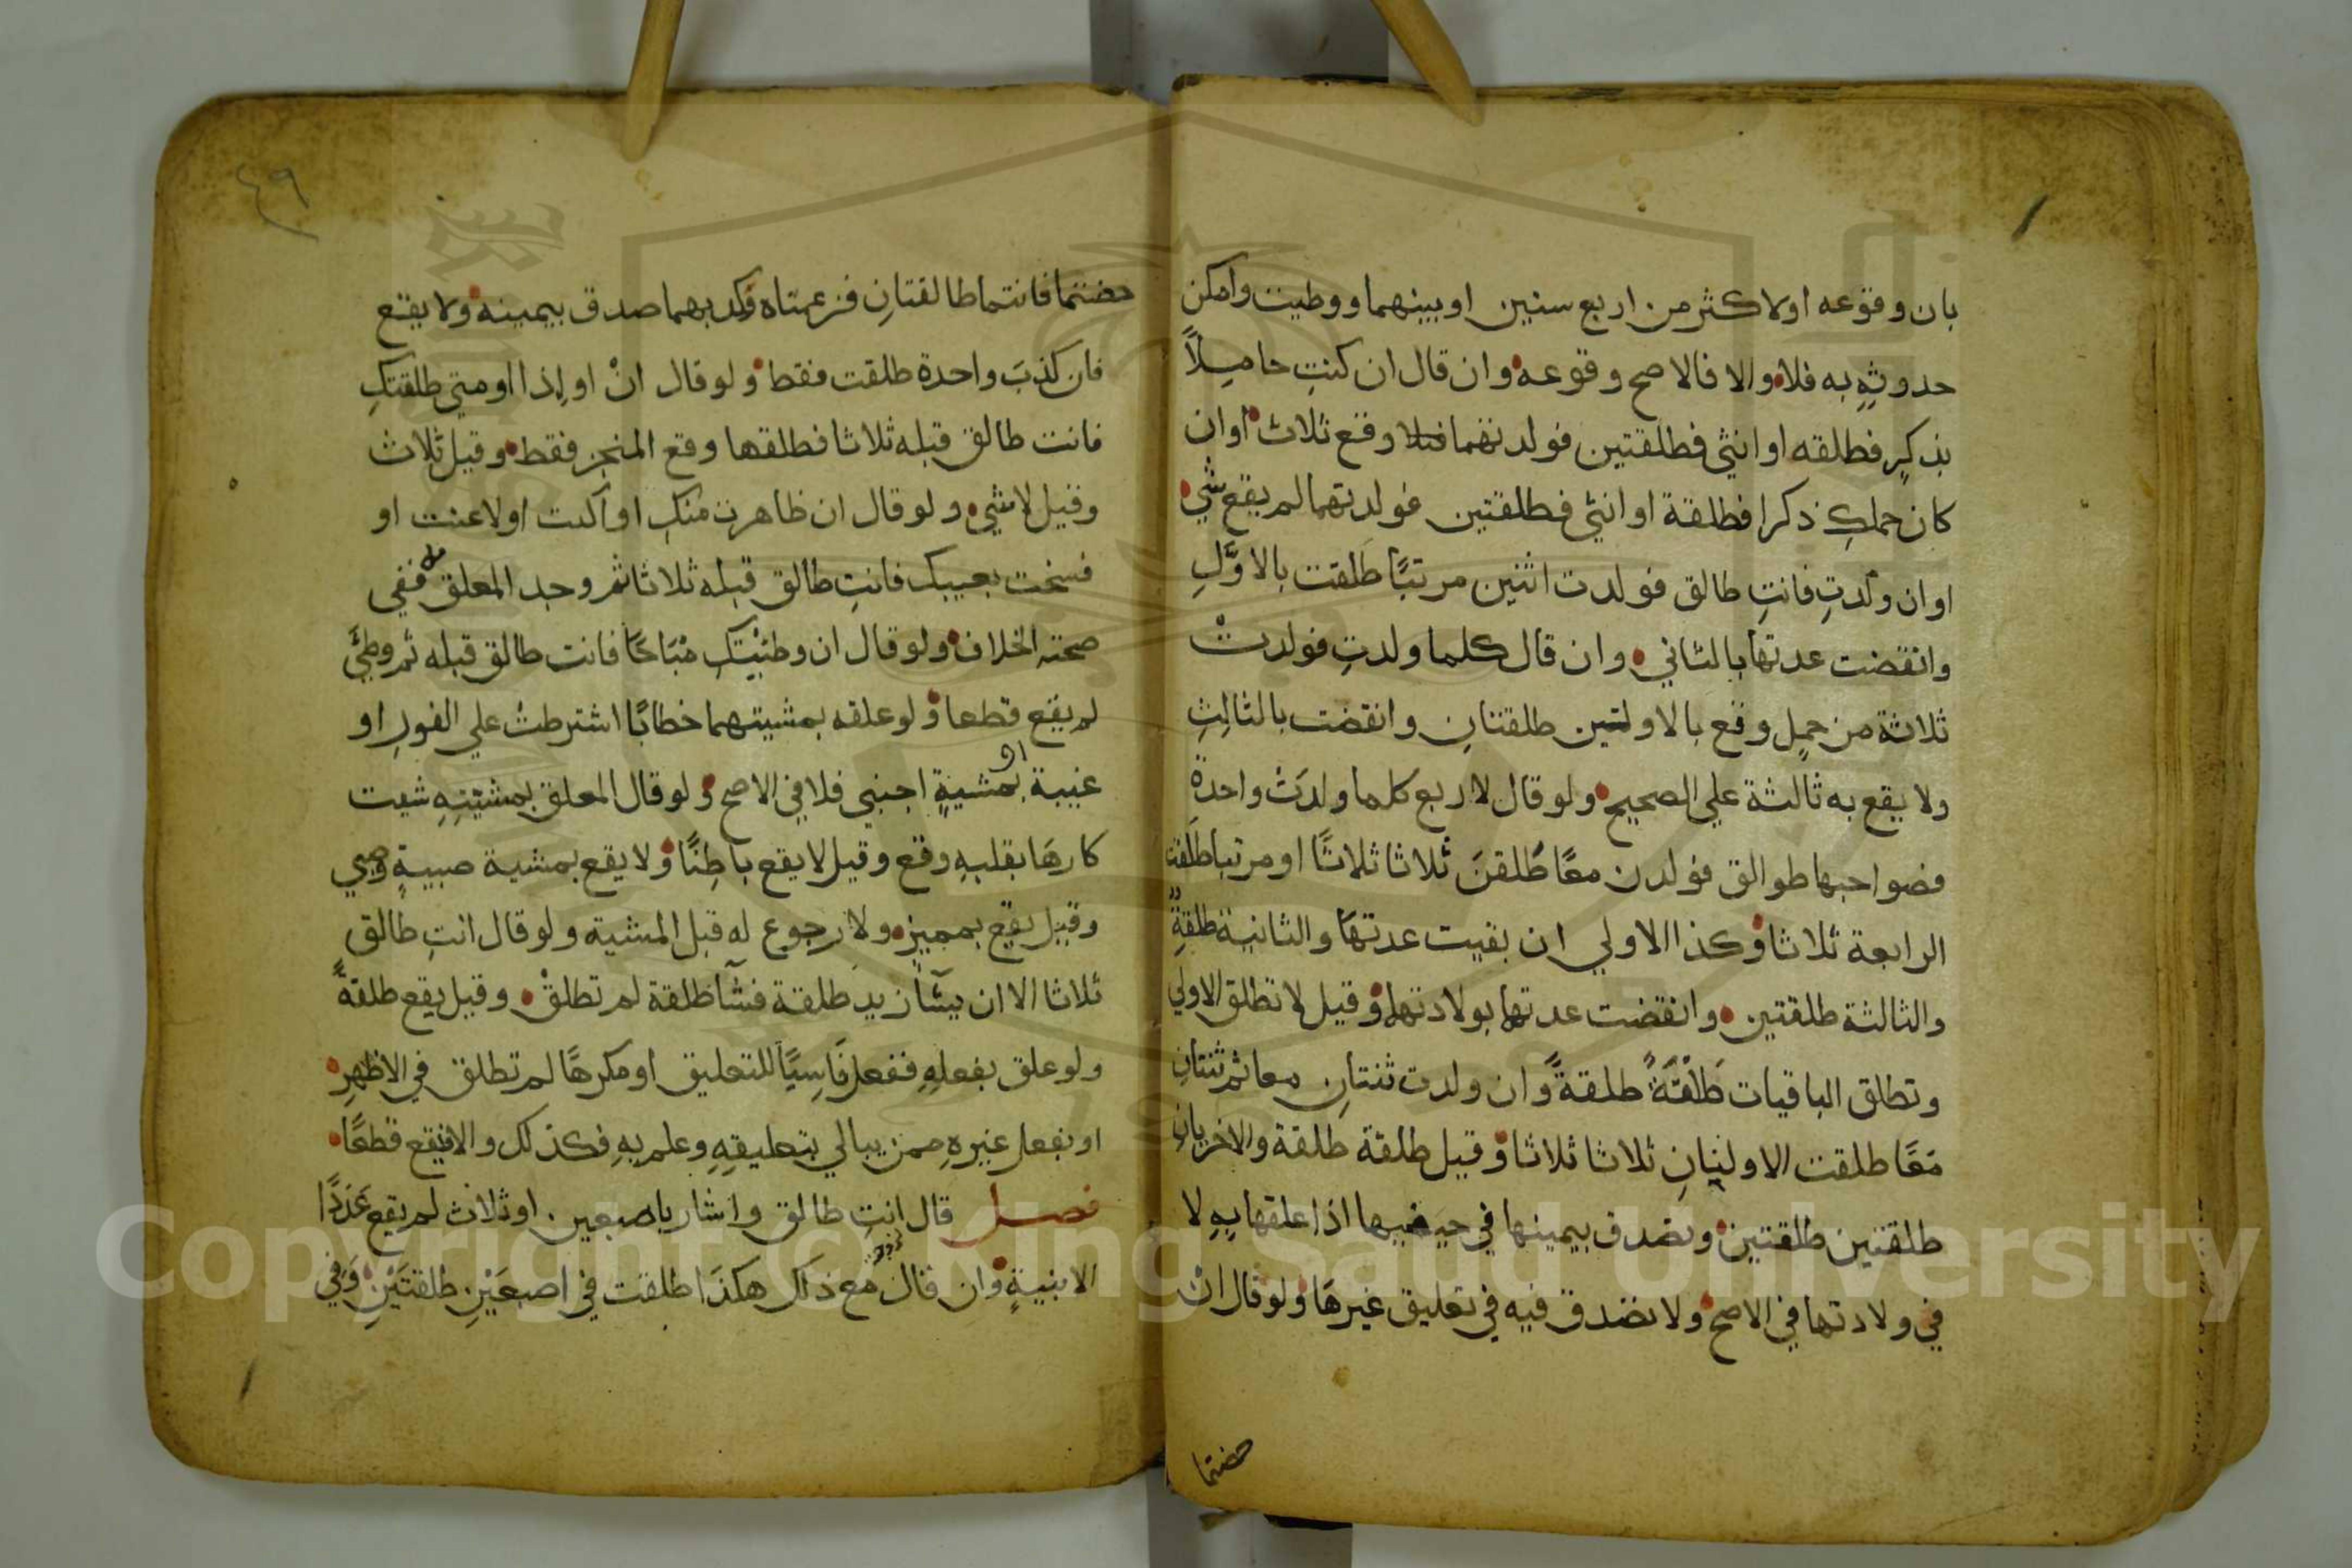 بان وقوعه او لاكثر من اربع سنين او بينهما ووطيت وامكن
حدوثِهِ به فلا والا فالاصح وقوعه وان قال ان كنتِ حاملاً
بذكرٍ فطلقه او انثى فطلقتين فولدتهما وقع ثلاث او ان
كان حملكِ ذكرا فطلقة او انثي فطلقتين فولدتهما لم يقع شي
او ان ولدتِ فانتِ طالق فولدت اثنين مرتبًا طلقت بالاوَّلِ
وانقضت عدتها بالثاني وان قال كلما ولدتِ فولدتْ
ثلاثة من حملٍ وقع بالاولتين طلقتانِ وانقضت بالثالثِ
ولا يقع به ثالثة علي الصحيح ولو قال لاربع كلما ولدَتْ واحدة
فصواحبها طوالق فولدن معًا طُلقنَ ثلاثا ثلاثًا او مرتبا طَلقت
الرابعة ثلاثا وكذا الاولي ان بقيت عدتها والثانية طلقةٍ
والثالثة طلقتين وانقضت عدتها بولادتها وقيل لا تطلق الاولي
وتطلق الباقيات طَلْقَةً طلقةً وان ولدت ثنتانِ معا ثم ثنتانِ
مَعًا طلقت الاوليَانِ ثلاثا ثلاثا وقيل طلقة طلقة والاخريانِ
طلقتين طلقتين وتصدق بيمينها في حيضها اذا علقها بهِ لا
في ولادتها في الاصح ولا تصدق فيه في تعليق غيرها ولو قال انْ
حضتما
٤٩
حضتما فانتما طالقتانِ فزعمتاه وكذبهما صدق بيمينه ولا يقع
فان كذبَ واحدة طلقت فقط ولو قال انْ او اِذا او متى طلقتكِ
فانت طالق قبله ثلاثا فطلقها وقع المنجز فقط وقيل ثلاث
وقيل لا شي ولو قال ان ظاهرت منكِ او آليت او لاعنت او
فسخت بعيبك فانتِ طالق قبله ثلاثا ثم وجد المعلق ففي
صحته الخلاف ولو قال ان وطئيتكِ مُبَاحًا فانت طالق قبله ثم وطئَ
لم يقع قطعا ولو علقه بمشيتهما خطابًا اشترطتْ علي الفورِ او
غيبة او بمشيةٍ اجنبي فلا في الاصح ولو قال المعلق بمشيّتِهِ شيت
كارهَا بقلبهِ وقع وقيل لا يقع باطِنًا ولا يقع بمشية صبيةٍ وصبي
وقيل يقع بمميز ولا رجوع له قبل المشية ولو قال انتِ طالق
ثلاثا الا ان يشآ زيد طلقة فشآ طلقة لم تطلقْ وقيل يقع طلقةً
ولو علق بفعلهِ ففعل نَاسِيًا للتعليق او مكرهًا لم تطلق في الاظهرِ
او بفعل غيرهِ ممن يبالي بتعليقهِ وعلم بهِ فكذلك والا فيقع قطعًا
فصل قال انتِ طالق واشار باصبعين او ثلاث لم يقع عَدَدًا
الا بنيةٍ وان قال مع ذاك هكذَا طلقت في اصبعَيْنِ طلقتَيْنِ وَفي
Copyright © King Saud University